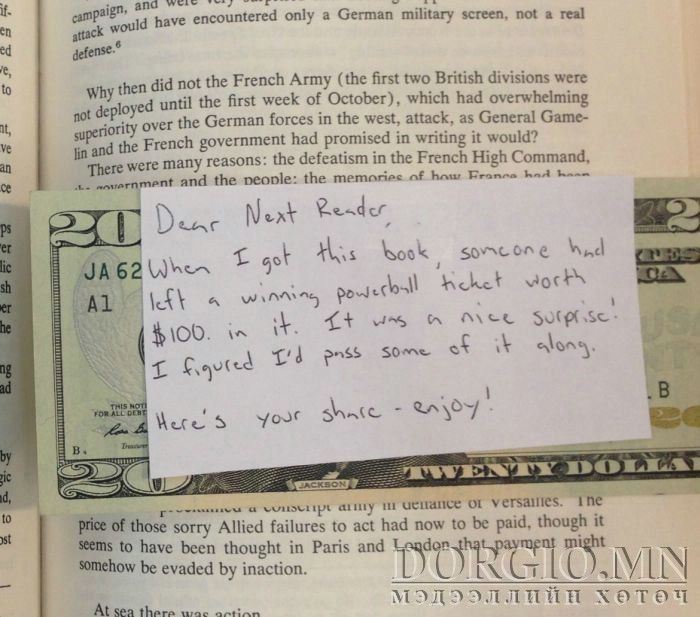 if-
en
ed
ve,
to
campaign, and were very
attack would have encountered only a German military screen, not a real
defense.⁶
Why then did not the French Army (the first two British divisions were
not deployed until the first week of October), which had overwhelming
superiority over the German forces in the west, attack, as General Game-
lin and the French government had promised in writing it would?
There were many reasons: the defeatism in the French High Command,
the government and the people; the memories of how France had been
nt,
ve
an
ce
ps
er
lic
sh
er
he
ng
ad
by
gic
nd,
to
ost
20
JA 62
A1
THIS NOTE
FOR ALL DEBT
Treasurer
B
JACKSON
TWENTY DOLLA
B
20
Dear Next Reader,
When I got this book, someone had
left a winning powerball ticket worth
$100. in it. It was a nice surprise!
I figured I'd pass some of it along.
Here's your share - enjoy!
proclaimed a conscript army in defiance of Versailles. The
price of those sorry Allied failures to act had now to be paid, though it
seems to have been thought in Paris and London that payment might
somehow be evaded by inaction.
At sea there was action
DORGIO.MN
МЭДЭЭЛЛИЙН ХӨТӨЧ